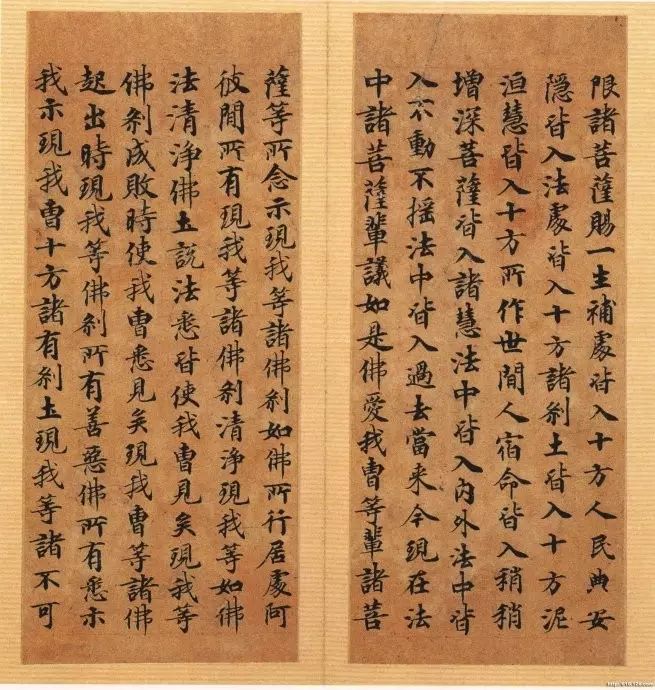 限諸菩薩賜一生補處皆入十方人民典安
隱皆入法處皆入十方諸剎土皆入十方泥
洹慧皆入十方所作世間人宿命皆入稍稍
增深菩薩皆入諸慧法中皆入內外法中皆
入不動不揺法中皆入過去當来今現在法
中諸菩薩輩議如是佛愛我曹等輩諸菩
薩等所念示現我等諸佛剎如佛所行居處阿
彼間所有現我等諸佛剎清淨現我等如佛
法清淨佛土說法悉皆使我曹見矣現我等
佛剎成敗時使我曹悉見矣現我曹等諸佛
起出時現我等佛剎所有善惡佛所有悉示
我示現我曹十方諸有剎土現我等諸不可